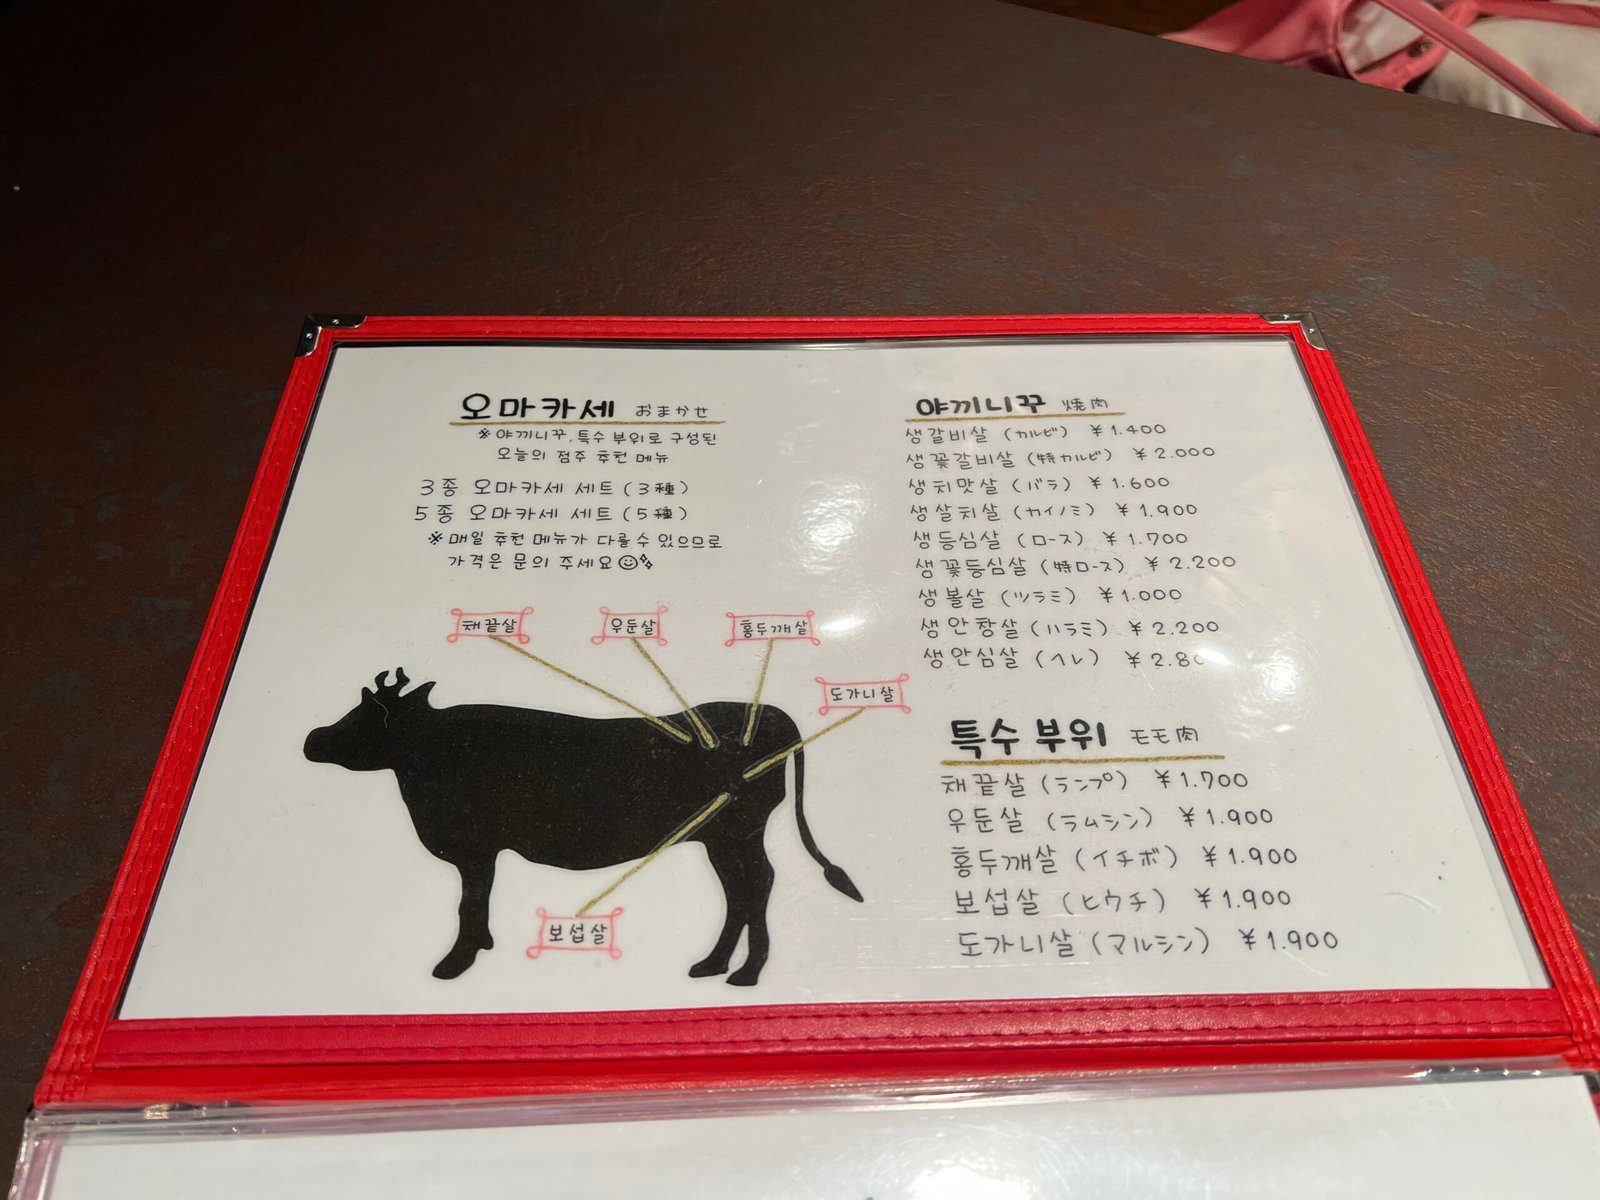 오마카세 おまかせ
※ 야끼니꾸, 특수 부위로 구성된
오늘의 점주 추천 메뉴
3종 오마카세 세트 (3種)
5종 오마카세 세트 (5種)
※ 매일 추천 메뉴가 다를 수 있으므로
가격은 문의 주세요
채끝살
우둔살
홍두깨살
도가니살
보섭살
야끼니꾸 焼肉
생갈비살 (カルビ) ¥1.400
생꽃갈비살 (特カルビ) ¥2.000
생치맛살 (バラ) ¥1.600
생살치살 (カイノミ) ¥1.900
생등심살 (ロース) ¥1.700
생꽃등심살 (特ロース) ¥2.200
생볼살 (ツラミ) ¥1.000
생안창살 (ハラミ) ¥2.200
생안심살 (ヘレ)
특수 부위 モモ肉
채끝살 (ランプ) ¥1.700
우둔살 (ラムシン) ¥1.900
홍두깨살 (イチボ) ¥1.900
보섭살 (ヒウチ) ¥1.900
도가니살 (マルシン) ¥1.900